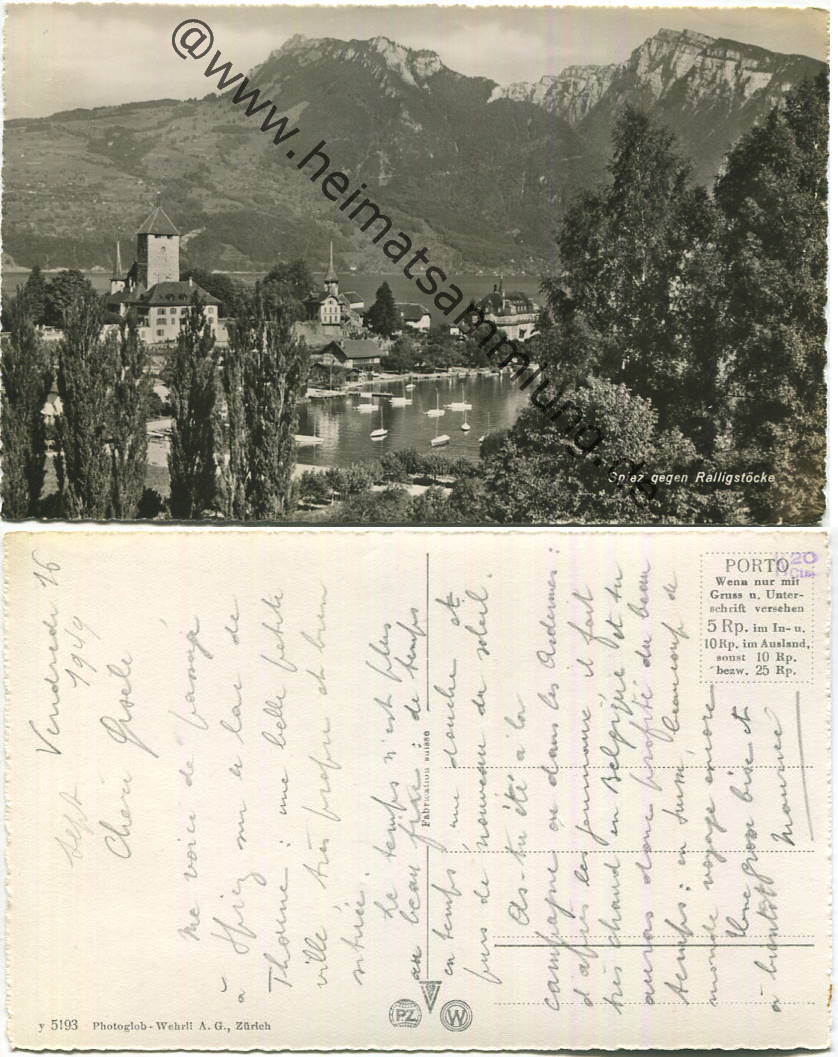 @www.heimatsammlung.de
Spiez gegen Ralligstöcke
PORTO
Wenn nur mit
Gruss u. Unter-
schrift versehen
5 Rp. im In- u.
10 Rp. im Ausland,
sonst 10 Rp.
bezw. 25 Rp.
20
Fabrication suisse
PZ
W
y 5193 Photoglob-Wehrli A. G., Zürich
Vendredi 16
Sept 1949
Cheri Gisele
me voici de passage
à Spiez sur le lac de
Thoune: une belle petite
ville très propre et bien
située.
Le temps n'est plus
au beau fixe: de temps
en temps, une douche et
puis de nouveau du soleil.
As-tu été à la
campagne ou dans les Ardennes:
d'après les journaux il fait
très chaud en Belgique et tu
auras donc profité du beau
temps: en Suisse, beaucoup de
monde voyage encore
Une grosse bise et
à bientôt Maurice